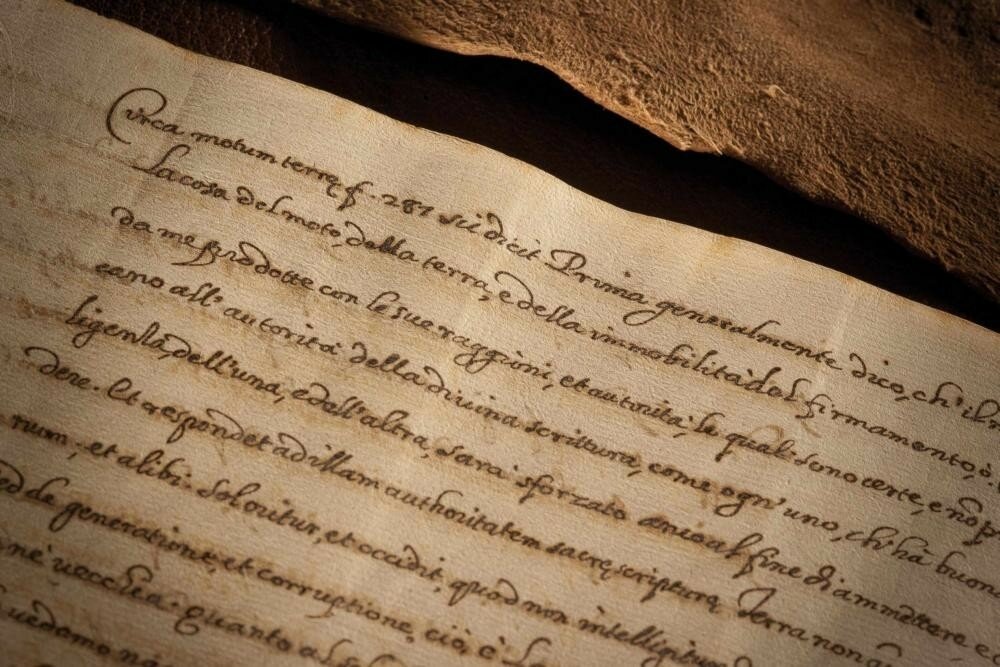 Circa motum terrę f. 287 sic dicit Prima generalmente dico, ch'il
La cosa del moto della terra, e della immobilità del firmamento, ò
da me prodotte con le sue raggioni, et autorità, le quali sono certe, e nõ p
cano all'autorità della divina scrittura, come ogn'uno, ch'hà buona
ligentia, dell'una, e dell'altra, sarà sforzato anco al fine di ammettere e c
dere. Et respondet ad illam authoritatem sacrę scripturę Terra non
rium, et alibi. Sol oritur, et occidit, quod non intelligitur
de generatione, et corruptione, ciò, è La
ne' vecchia. quanto al
uedemo na